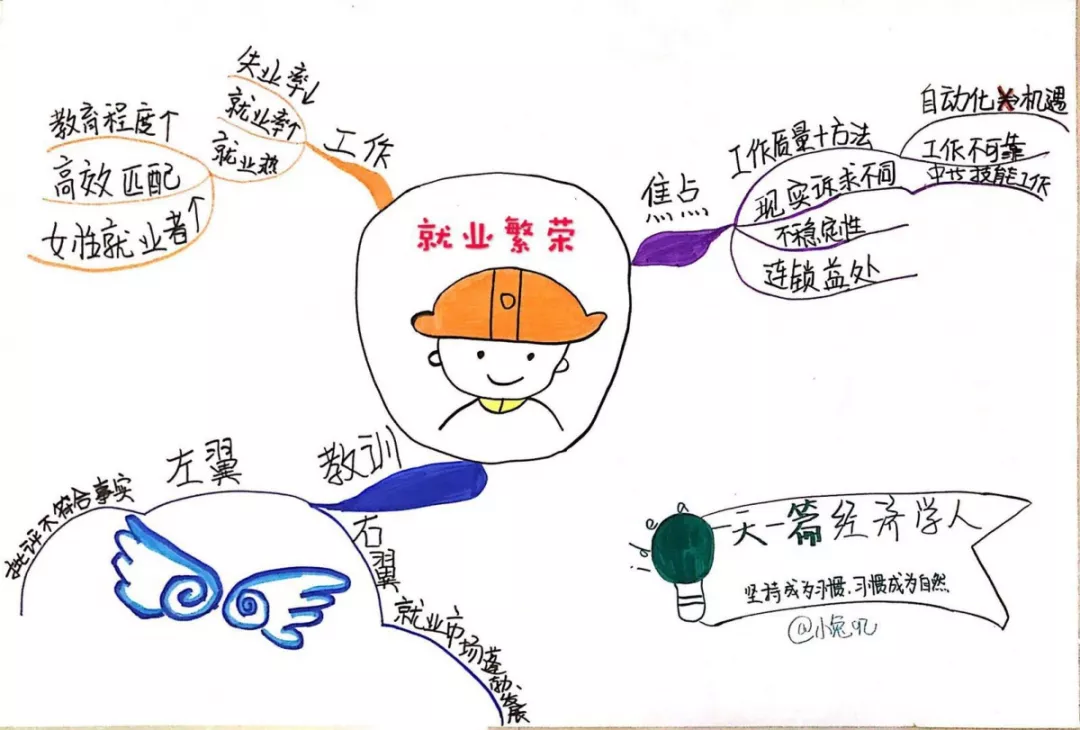 就业繁荣
工作
失业率↓
就业率↑
就业热
教育程度↑
高效匹配
女性就业者↑
焦点
工作质量+方法
自动化⇏机遇
工作不可靠
中世技能工作
现实诉求不同
不稳定性
连锁益处
教训
左翼
批评不符合事实
右翼
就业市场蓬勃发展
idea
一天一篇经济学人
坚持成为习惯,习惯成为自然
@小兔叽